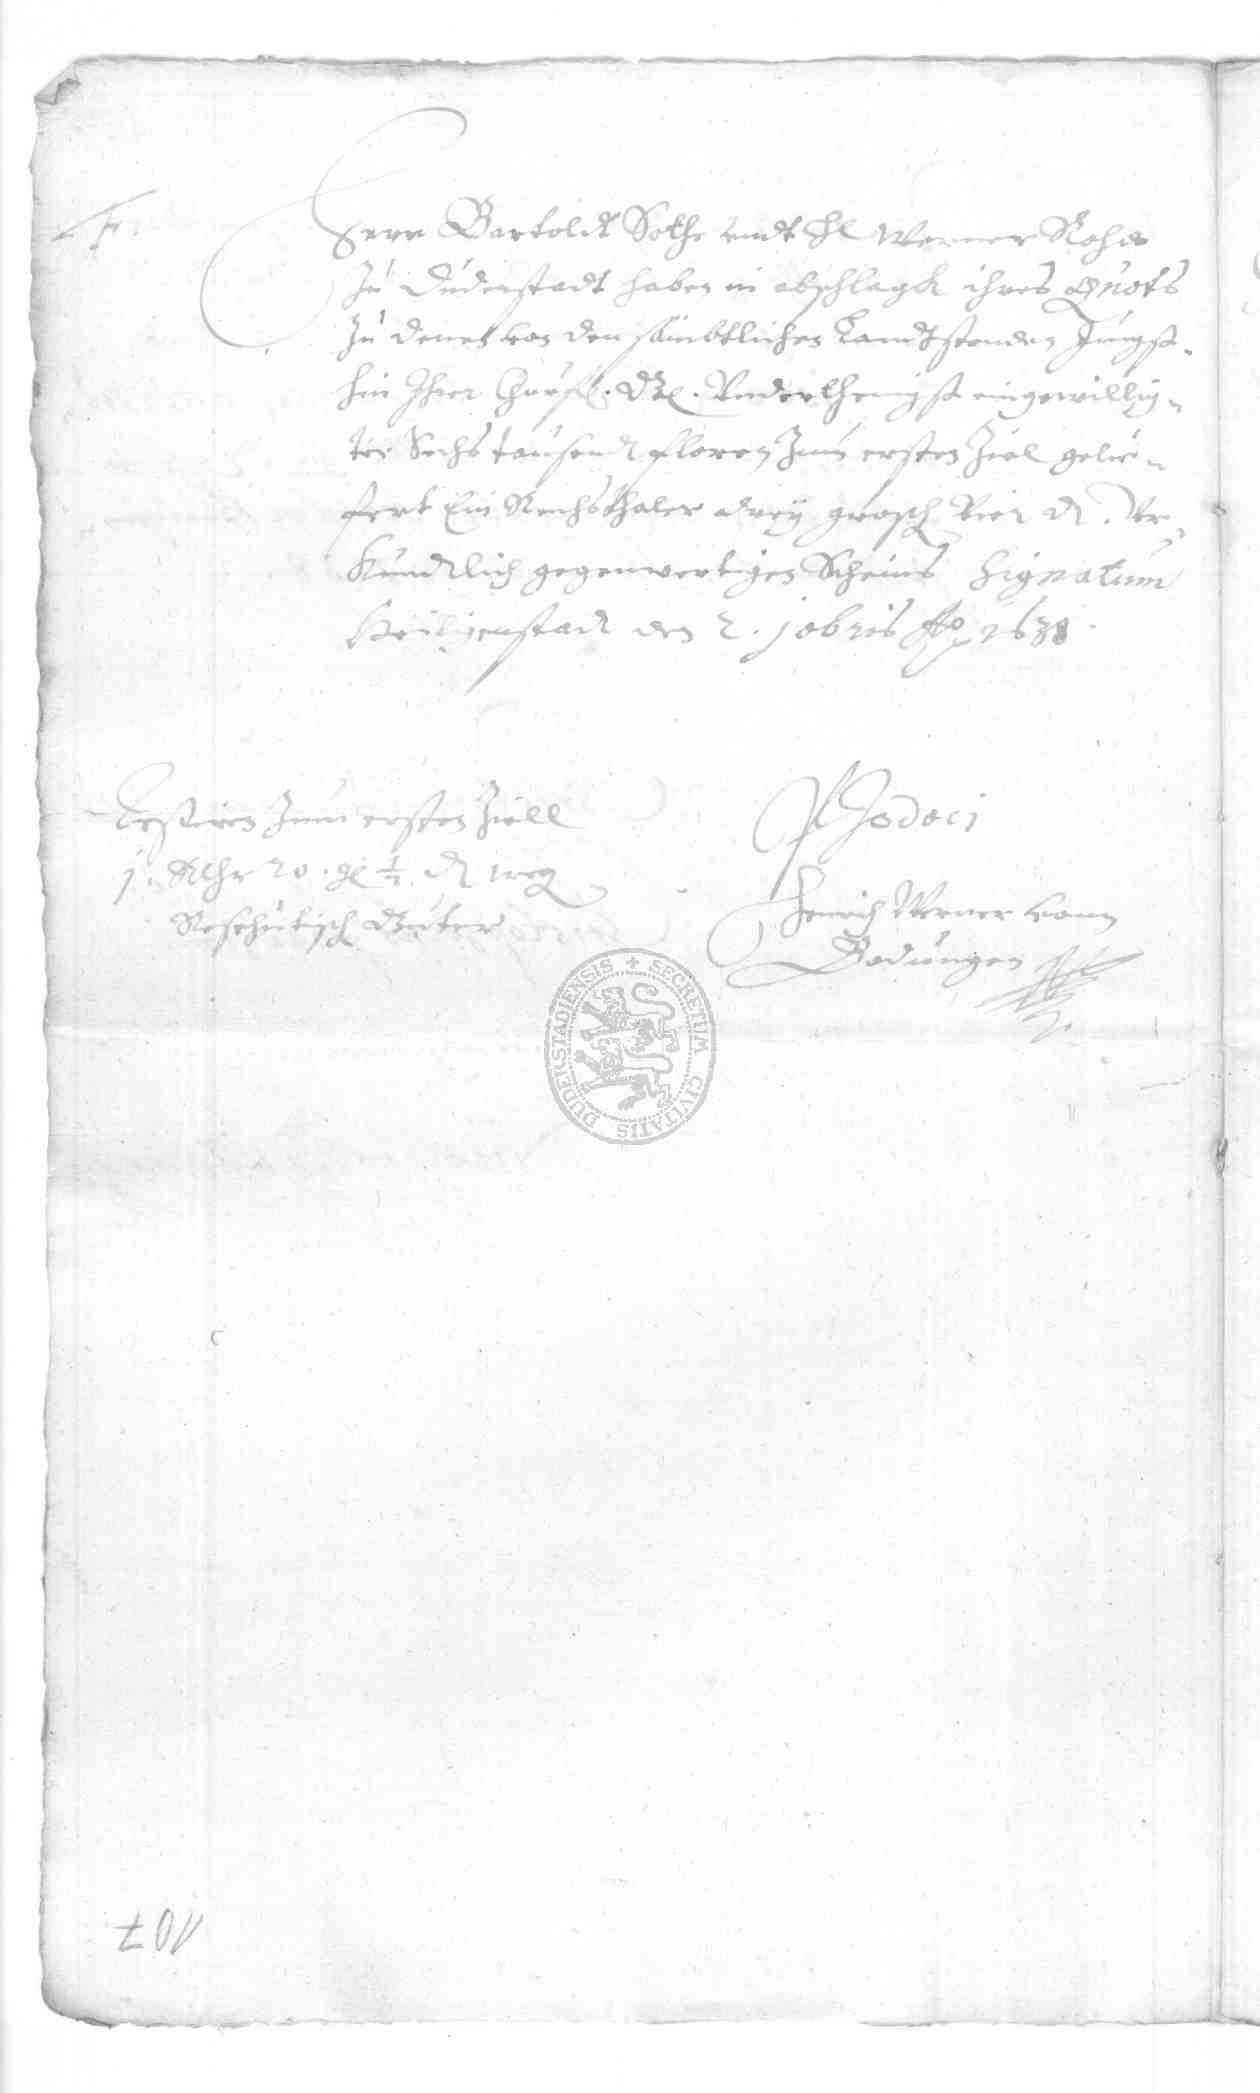 F.
Herr Bartoldt Sothe undt H Werner Rohde
Zu Duderstadt haben in abschlagk ihres Quots
Zu denen von den sämbtlichen Landtstenden Jüngst-
hin Ihrer Churfl. Underthenigst eingewillig-
ter Sechstausendt floren Zum ersten Ziel gelie-
fert Ein Reichsthaler drey grosch Vier d. Ur-
kundtlich gegenwertigen Scheins Signatum
Heiligenstadt den 2. Ao
Restiren Zum ersten Ziell
1. Rthr 20. gl ½ d weg
Güter
Jodoci
Henrich Werner vonn
Bodungen
SECRETUM CIVITATIS DUDERSTADIENSIS
107